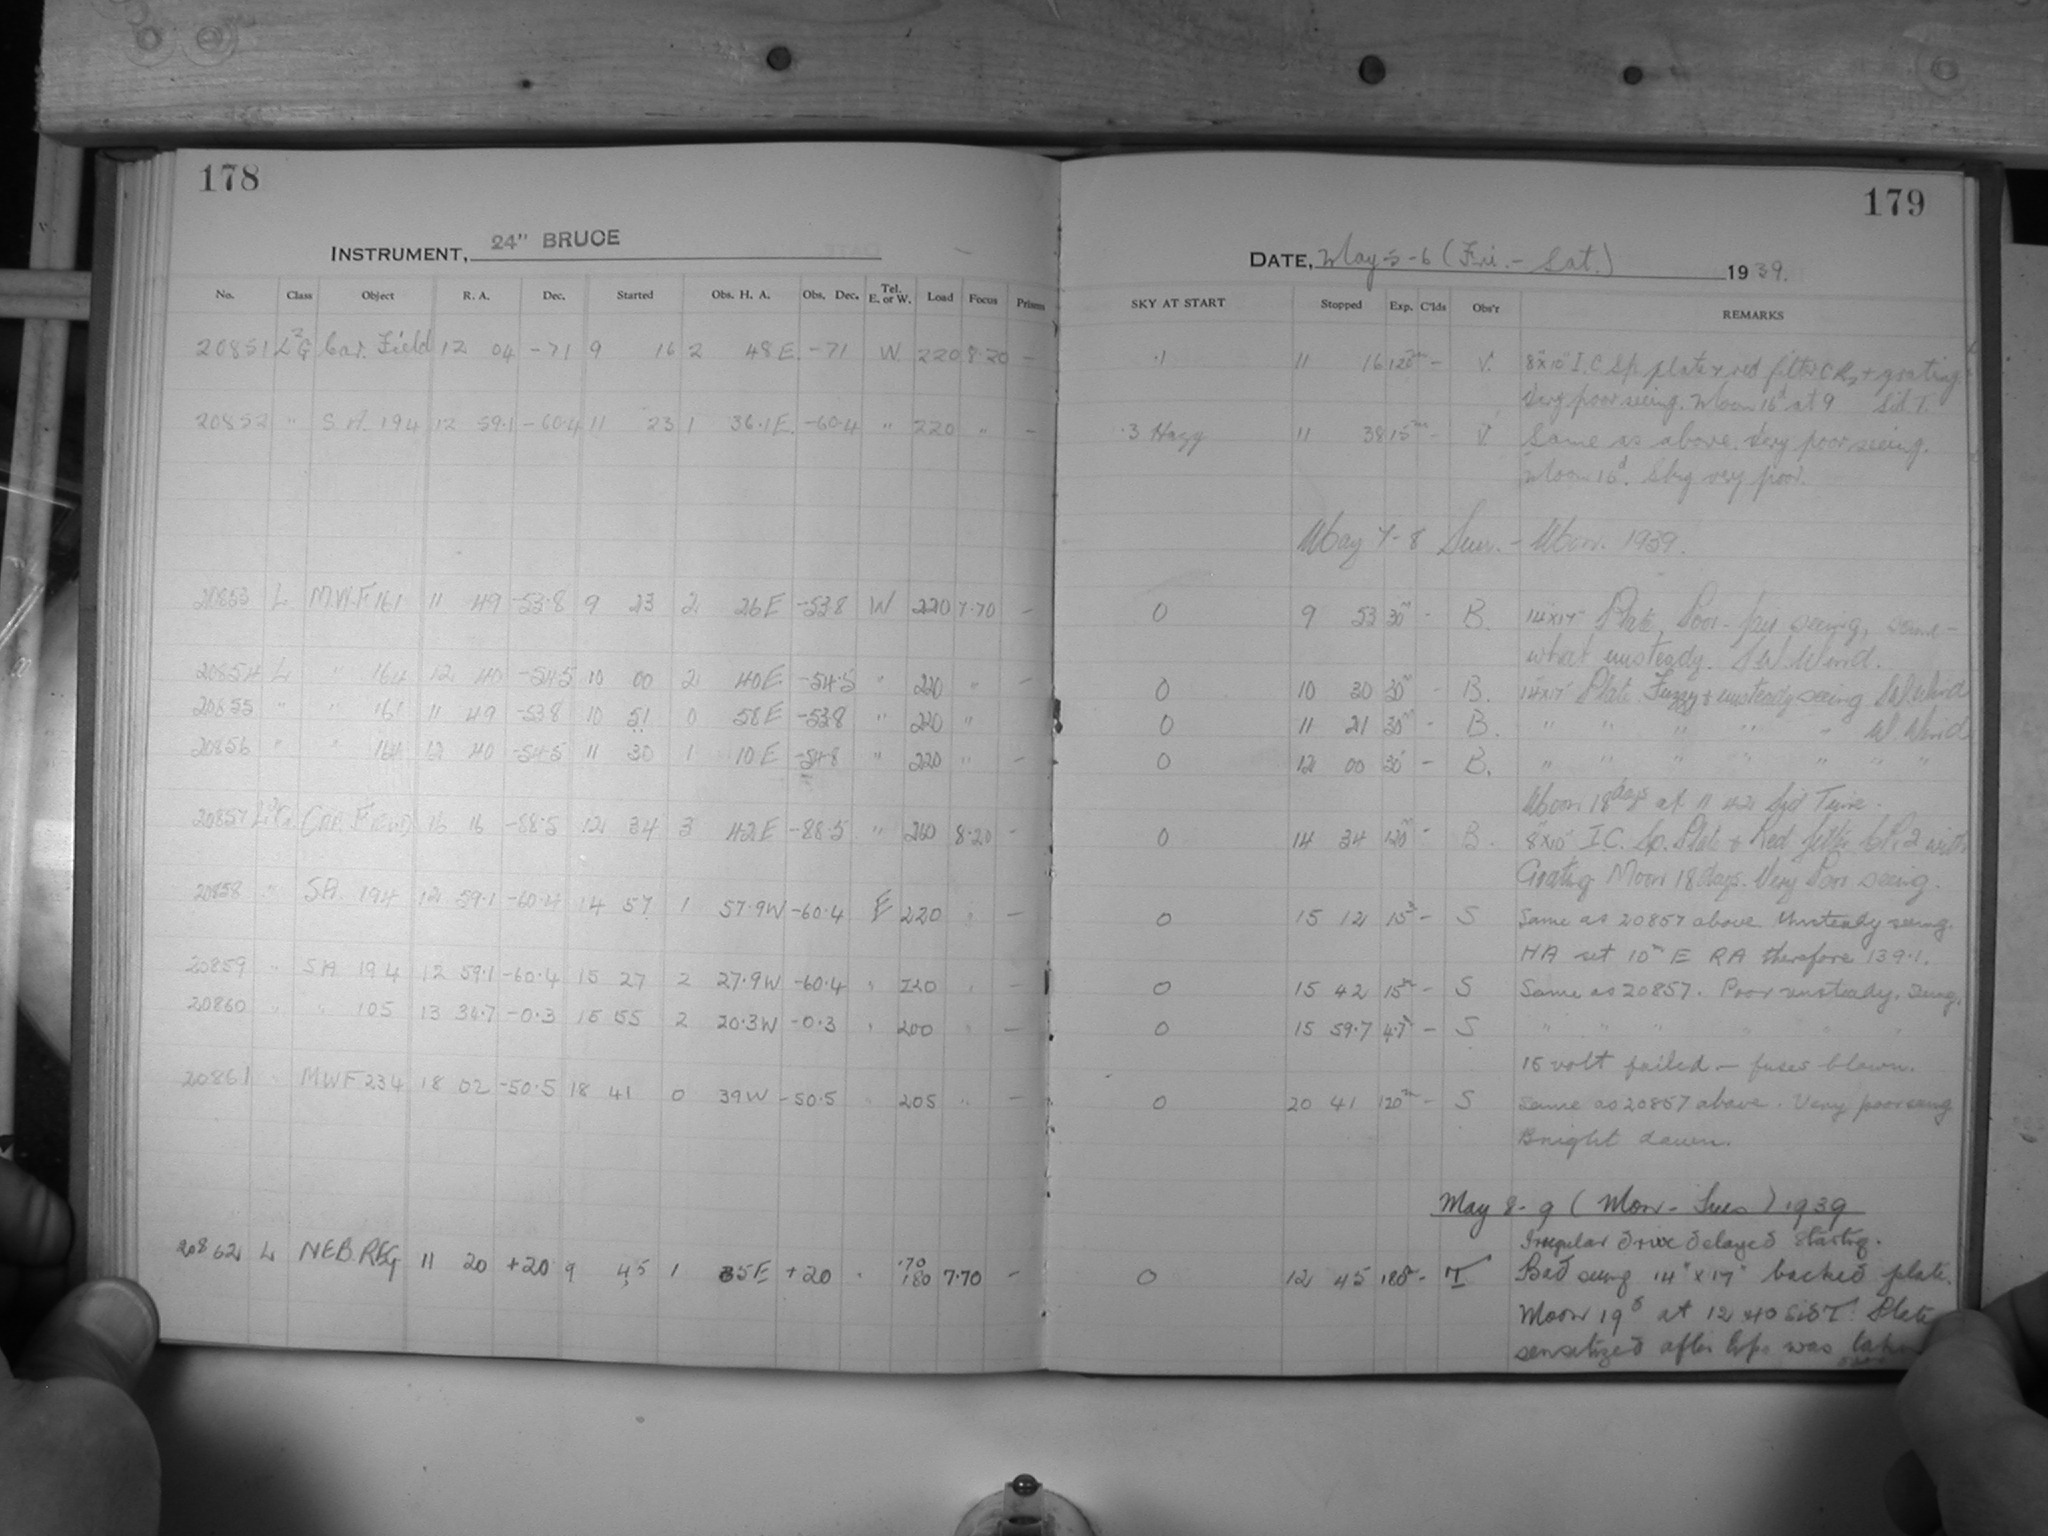 178
INSTRUMENT, 24" BRUCE
No. Class Object R. A. Dec. Started Obs. H. A. Obs. Dec. Tel. E. or W. Load Focus Prisms
20851 L²G Car. Field 12 04 -71 9 16 2 48 E. -71 W 220 8.20 -
20852 " S.A. 194 12 59.1 -60.4 11 23 1 36.1 E. -60.4 " 220 " -
20853 L M.W.F 161 11 49 -53.8 9 23 2 26 E -53.8 W 220 7.70 -
20854 L " 164 12 40 -54.5 10 00 2 40 E -54.5 " 220 " -
20855 " " 161 11 49 -53.8 10 51 0 58 E -53.8 " 220 "
20856 " " 164 12 40 -54.5 11 30 1 10 E -54.8 " 220 " -
20857 16 16 -88.5 12 34 3 42 E -88.5 " 260 8.20 -
20858 " SA. 194 12 59.1 -60.4 14 57 1 57.9 W -60.4 E 220 " -
20859 " SA 194 12 59.1 -60.4 15 27 2 27.9 W -60.4 " 220 " -
20860 " " 105 13 34.7 -0.3 15 55 2 20.3 W -0.3 " 200 " -
20861 " MWF 234 18 02 -50.5 18 41 0 39 W -50.5 " 205 " -
20862 L NEB. REG 11 20 +20 9 45 1 35 E +20 " 170 180 7.70 -
179
DATE, May 5-6 (Fri. - Sat.) 1939.
SKY AT START Stopped Exp. C'lds Obs'r REMARKS
.1 11 16 120ᵐ - V. 8"x10" I.C. Sp. plate + red filter CR2 + grating
Very poor seeing. Moon 16ᵈ at 9 Sid T.
.3 Hazy 11 38 15ᵐ - V Same as above. Very poor seeing.
Moon 16ᵈ. Sky very poor.
May 7-8 Sun. - Mon. 1939.
0 9 53 30ᵐ - B. 14"x17" Plate, Poor-fair seeing, some-
what unsteady. S.W. Wind.
0 10 30 30ᵐ - B. 14"x17" Plate Fuzzy & unsteady seeing SW Wind
0 11 21 30ᵐ - B. " " " " " W. Wind
0 12 00 30 - B. " " " " " " "
Moon 18 days at 11 42 Sid Time.
0 14 34 120ᵐ - B. 8"x10" I.C. Sp. Plate + Red filter CR.2 with
Grating Moon 18 days. Very Poor seeing.
0 15 12 15ᵐ - S Same as 20857 above. Unsteady seeing.
HA set 10ᵐ E RA therefore 13 9.1.
0 15 42 15ᵐ - S Same as 20857. Poor unsteady. Seeing.
0 15 59.7 4.7ᵐ - S " " " " "
15 volt failed - fuses blown.
0 20 41 120ᵐ - S Same as 20857 above. Very poor seeing
Bright dawn.
May 8-9 (Mon - Tues) 1939
Irregular drive delayed starting.
0 12 45 180ᵐ - T Bad seeing 14" x 17" backed plate.
Moon 19ᵈ at 12 40 SidT. Plate
sensitized after Exp. was taken